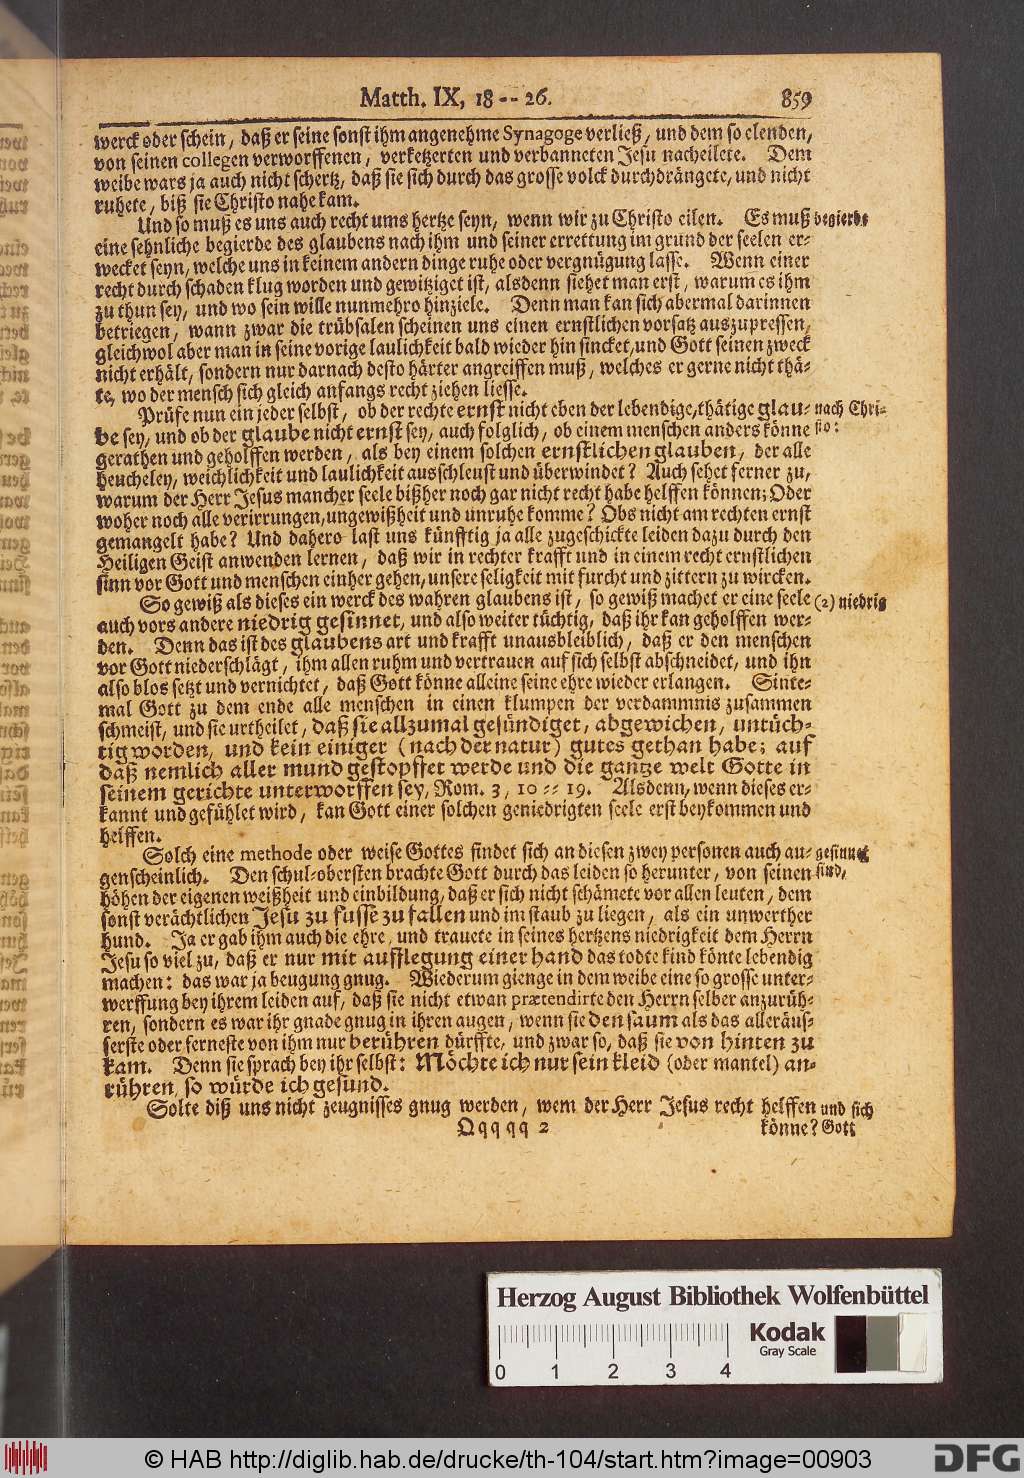 Matth. IX, 18 -- 26. 859
werck oder schein, daß er seine sonst ihm angenehme Synagoge verließ, und dem so elenden,
von seinen collegen verworffenen, verketzerten und verbanneten Jesu nacheilete. Dem
weibe wars ja auch nicht schertz, daß sie sich durch das grosse volck durchdrängete, und nicht
ruhete, biß sie Christo nahe kam.
Und so muß es uns auch recht ums hertze seyn, wenn wir zu Christo eilen. Es muß begierde
eine sehnliche begierde des glaubens nach ihm und seiner errettung im grund der seelen er-
wecket seyn, welche uns in keinem andern dinge ruhe oder vergnügung lasse. Wenn einer
recht durch schaden klug worden und gewitziget ist, alsdenn siehet man erst, warum es ihm
zu thun sey, und wo sein wille nunmehro hinziele. Denn man kan sich abermal darinnen
betriegen, wann zwar die trübsalen scheinen uns einen ernstlichen vorsatz auszupressen,
gleichwol aber man in seine vorige laulichkeit bald wieder hin sincket, und Gott seinen zweck
nicht erhält, sondern nur darnach desto härter angreiffen muß, welches er gerne nicht thä-
te, wo der mensch sich gleich anfangs recht ziehen liesse.
Prüfe nun ein jeder selbst, ob der rechte ernst nicht eben der lebendige, thätige glau- nach Chri-
be sey, und ob der glaube nicht ernst sey, auch folglich, ob einem menschen anders könne sto:
gerathen und geholffen werden, als bey einem solchen ernstlichen glauben, der alle
heucheley, weichlichkeit und laulichkeit ausschleust und überwindet? Auch sehet ferner zu,
warum der Herr Jesus mancher seele bißher noch gar nicht recht habe helffen können; Oder
woher noch alle verirrungen, ungewißheit und unruhe komme? Obs nicht am rechten ernst
gemangelt habe? Und dahero last uns künfftig ja alle zugeschickte leiden dazu durch den
Heiligen Geist anwenden lernen, daß wir in rechter krafft und in einem recht ernstlichen
sinn vor Gott und menschen einher gehen, unsere seligkeit mit furcht und zittern zu wircken.
So gewiß als dieses ein werck des wahren glaubens ist, so gewiß machet er eine seele (2) niedrig
auch vors andere niedrig gesinnet, und also weiter tüchtig, daß ihr kan geholffen wer-
den. Denn das ist des glaubens art und krafft unausbleiblich, daß er den menschen
vor Gott niederschlägt, ihm allen ruhm und vertrauen auf sich selbst abschneidet, und ihn
also blos setzt und vernichtet, daß Gott könne alleine seine ehre wieder erlangen. Sinte-
mal Gott zu dem ende alle menschen in einen klumpen der verdammnis zusammen
schmeist, und sie urtheilet, daß sie allzumal gesündiget, abgewichen, untüch-
tig worden, und kein einiger (nach der natur) gutes gethan habe; auf
daß nemlich aller mund gestopffet werde und die gantze welt Gotte in
seinem gerichte unterworffen sey, Rom. 3, 10 -- 19. Alsdenn, wenn dieses er-
kannt und gefühlet wird, kan Gott einer solchen geniedrigten seele erst beykommen und
helffen.
Solch eine methode oder weise Gottes findet sich an diesen zwey personen auch au- gesinnet
genscheinlich. Den schul-obersten brachte Gott durch das leiden so herunter, von seinen sind,
höhen der eigenen weißheit und einbildung, daß er sich nicht schämete vor allen leuten, dem
sonst verächtlichen Jesu zu fusse zu fallen und im staub zu liegen, als ein unwerther
hund. Ja er gab ihm auch die ehre, und trauete in seines hertzens niedrigkeit dem Herrn
Jesu so viel zu, daß er nur mit aufflegung einer hand das todte kind könte lebendig
machen: das war ja beugung gnug. Wiederum gienge in dem weibe eine so grosse unter-
werffung bey ihrem leiden auf, daß sie nicht etwan prætendirte den Herrn selber anzurüh-
ren, sondern es war ihr gnade gnug in ihren augen, wenn sie den saum als das alleräus-
serste oder ferneste von ihm nur berühren dürffte, und zwar so, daß sie von hinten zu
kam. Denn sie sprach bey ihr selbst: Möchte ich nur sein kleid (oder mantel) an-
rühren, so würde ich gesund.
Solte diß uns nicht zeugnisses gnug werden, wem der Herr Jesus recht helffen und sich
Qqqqq 2 könne? Gott
Herzog August Bibliothek Wolfenbüttel
0 1 2 3 4
Kodak
Gray Scale
© HAB http://diglib.hab.de/drucke/th-104/start.htm?image=00903
DFG